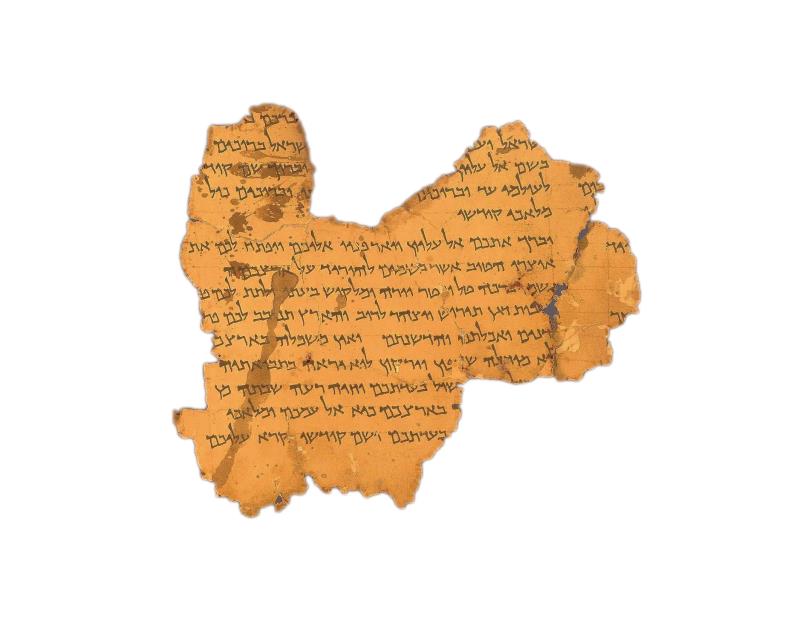 וברכם
ישראל ברוכים
בשם אל עליון וברוך שם קודשו
לעולמי עד וברוכים וברוכים כול
מלאכי קודשו
יברך אתכם אל עליון ויאר פניו אליכם ויפתח לכם את
אוצרו הטוב אשר בשמים להוריד על ארצכם
גשמי ברכה טל ומטר יורה ומלקוש בעתו ולתת לכם
דגן תירוש ויצהר לרוב והארץ תנובב לכם
ואכלתם והדשנתם ואין משכלה בארצ
ולוא מוחלה שדפון וירקון לוא יראה בתבואתיה
בעדתכם וחיה רעה שבתה מן
בארצכם כיא אל עמכם ומלאכי
בעדתכם ושם קודשו נקרא עליכם